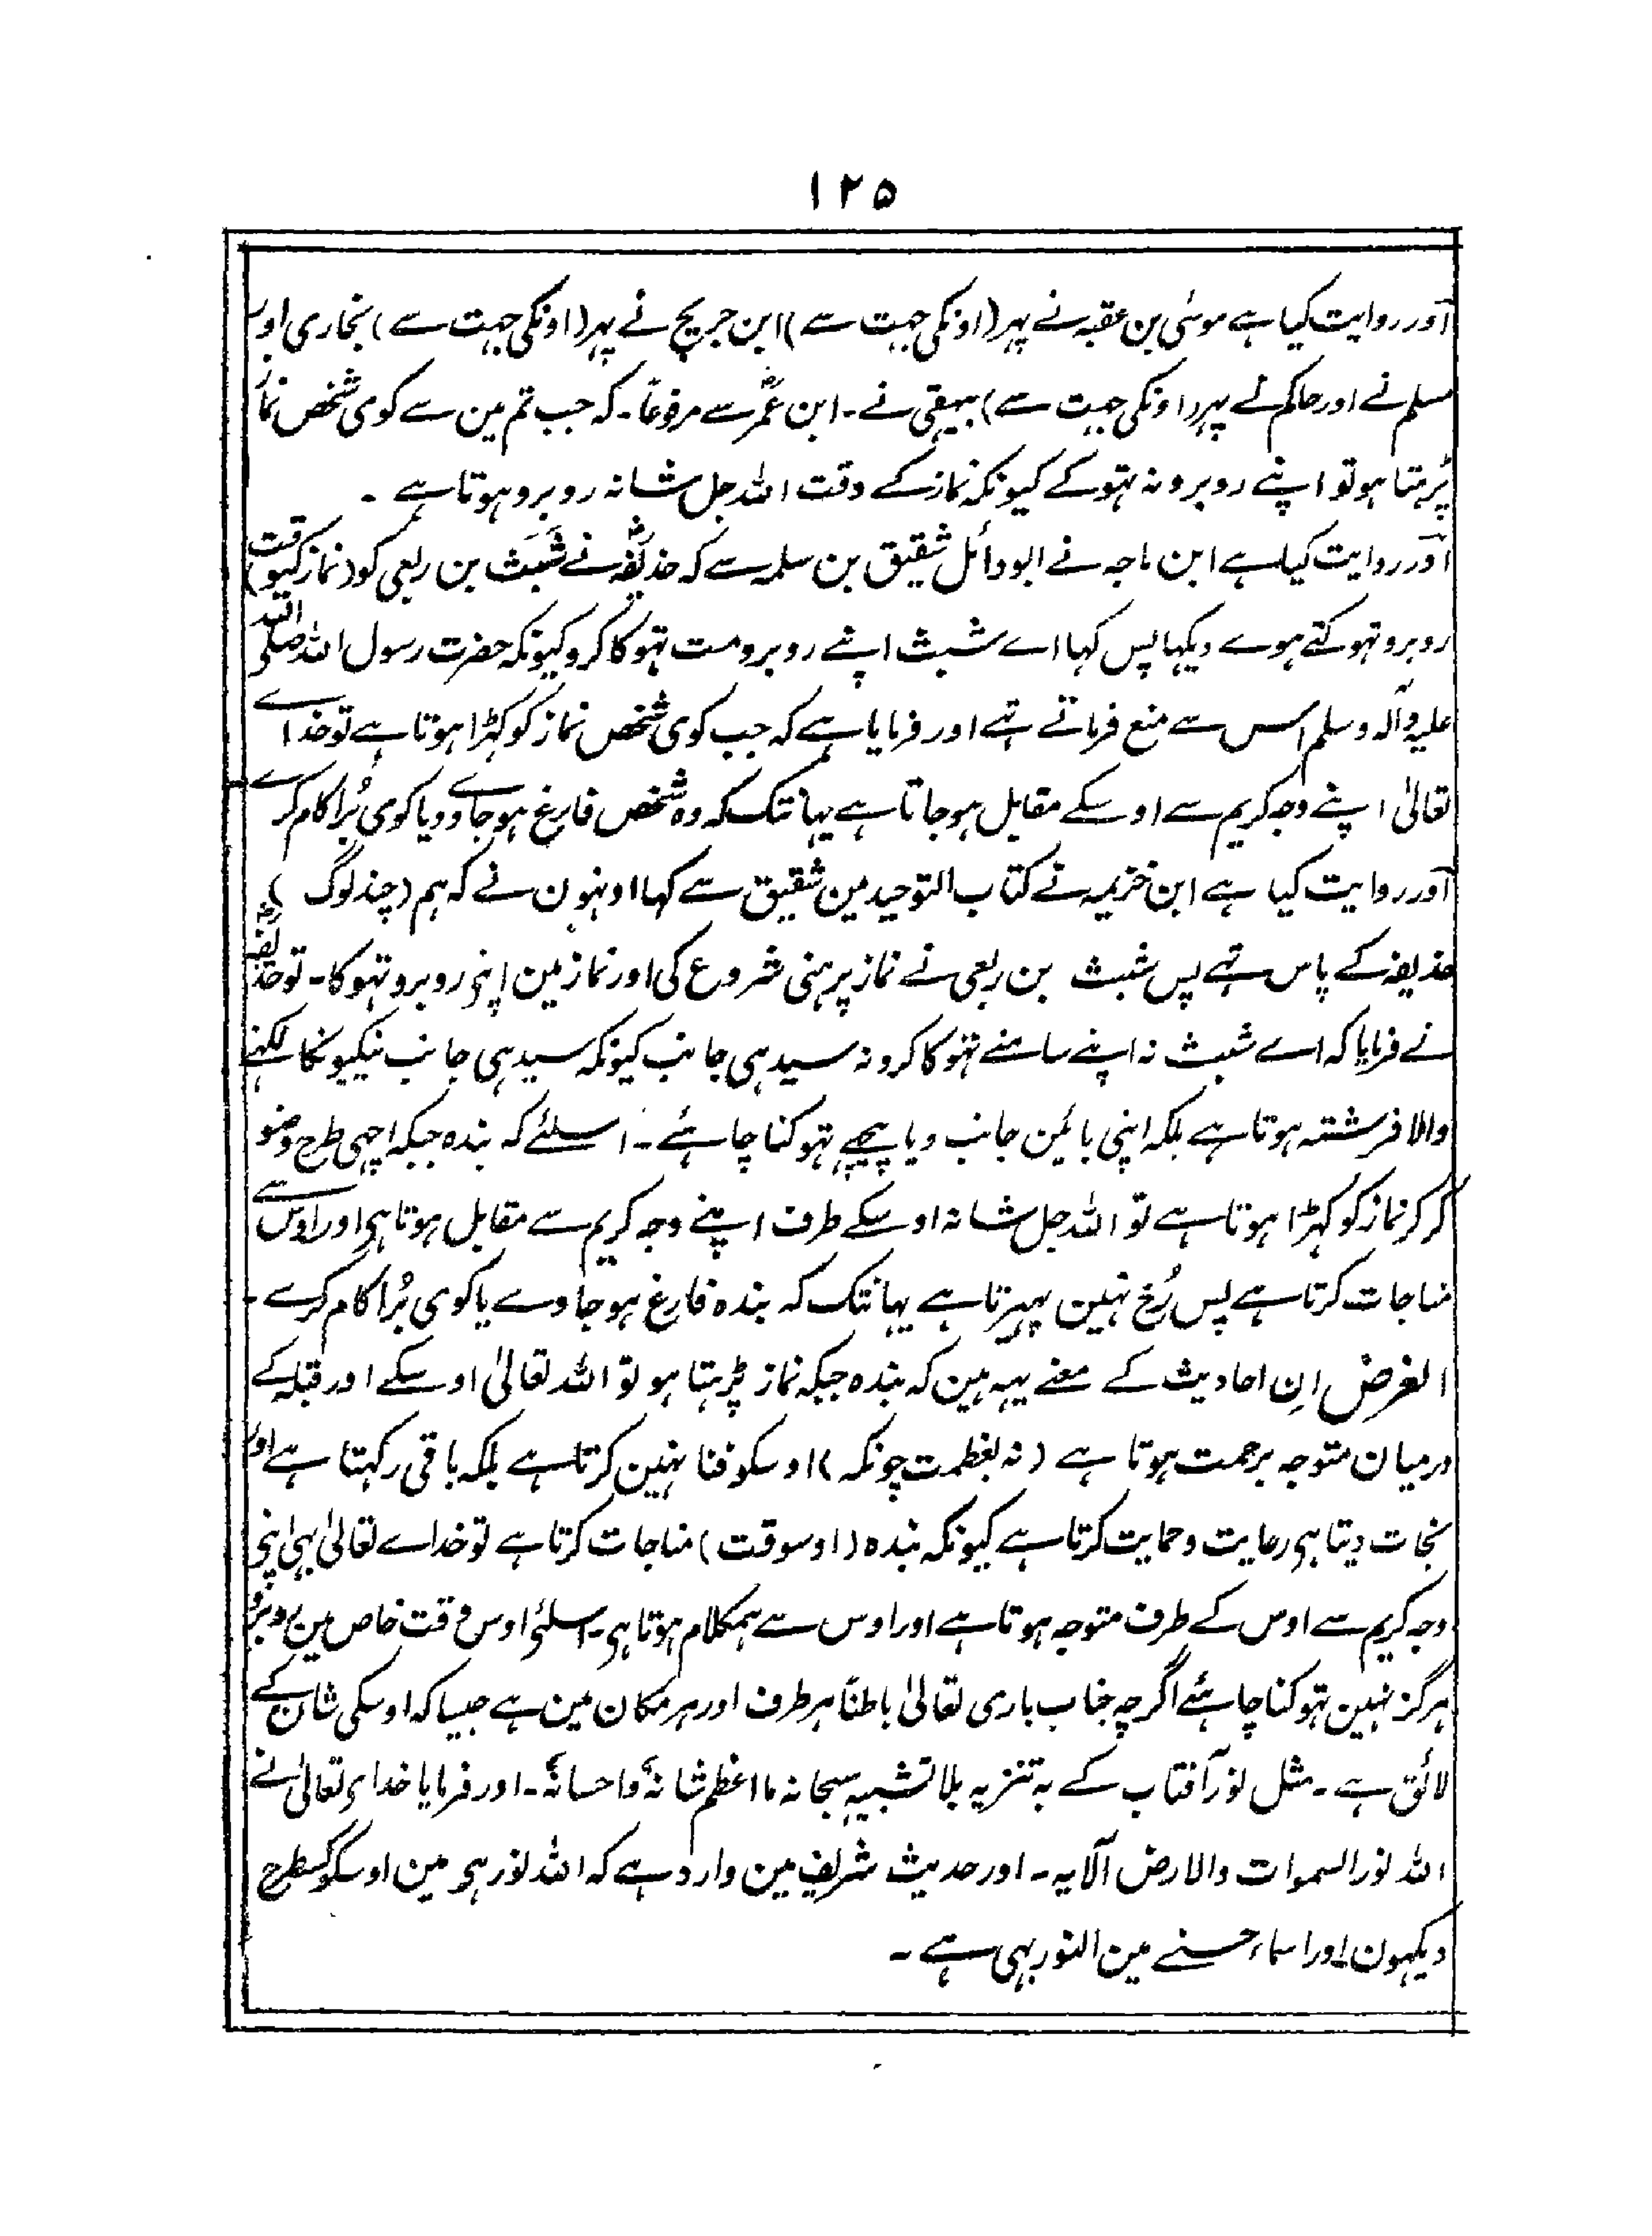 ۱۲۵
اور روایت کیا ہے موسٰی بن عقبہ نے پہر (اونکی جہت سے) ابن جریج نے پہر (اونکی جہت سے) بخاری اور
مسلم نے اور حاکم نے پہر (اونکی جہت سے) بیہقی نے۔ ابن عمرؓ سے مرفوعًا۔ کہ جب تم مین سے کوی شخص نماز
پڑہتا ہو تو اپنے روبرو نہ تہوکے کیونکہ نماز کے وقت اللہ جل شانہ روبرو ہوتا ہے ۔
اور روایت کیا ہے ابن ماجہ نے ابو وائل شقیق بن سلمہ سے کہ حذیفہؓ نے شَبَث بن ربعی کو (نماز کیوقت)
روبرو تہوکتے ہوے دیکہا پس کہا اے شبث اپنے روبرو مت تہوکا کرو کیونکہ حضرت رسول اللہ صلی اللہ
علیہ وآلہ وسلم اس سے منع فرماتے تہے اور فرمایا ہے کہ جب کوی شخص نماز کو کہڑا ہوتا ہے تو خداے
تعالیٰ اپنے وجہ کریم سے اوسکے مقابل ہوجاتا ہے یہانتک کہ وہ شخص فارغ ہوجاوے ویا کوی بُرا کام کرے
اور روایت کیا ہے ابن خزیمہ نے کتاب التوحید مین شقیق سے کہا اونہون نے کہ ہم (چند لوگ )
حذیفہ کے پاس تہے پس شبث بن ربعی نے نماز پرہنی شروع کی اور نماز مین اپنی روبرو تہوکا۔ تو حذیفہؓ
نے فرمایا کہ اے شبث نہ اپنے سامنے تہوکا کرو نہ سیدہی جانب کیونکہ سیدہی جانب نیکیونکا لکہنے
والا فرشتہ ہوتا ہے بلکہ اپنی بائین جانب ویا پیچہے تہوکنا چاہئے۔ اسلئے کہ بندہ جبکہ اچہی طرح وضو
کر کر نماز کو کہڑا ہوتا ہے تو اللہ جل شانہ اوسکے طرف اپنے وجہ کریم سے مقابل ہوتا ہی اور اوس سے
مناجات کرتا ہے پس رُخ نہین پہیرتا ہے یہانتک کہ بندہ فارغ ہو جاوے یا کوی بُرا کام کرے۔
الغرض اِن احادیث کے معنے یہہ ہین کہ بندہ جبکہ نماز پڑہتا ہو تو اللہ تعالیٰ اوسکے اور قبلہ کے
درمیان متوجہ برحمت ہوتا ہے (نہ بعظمت چونکہ) اوسکو فنا نہین کرتا ہے بلکہ باقی رکہتا ہے اور
نجات دیتا ہی رعایت و حمایت کرتا ہے کیونکہ بندہ (اوسوقت) مناجات کرتا ہے تو خداے تعالیٰ بہی اپنی
وجہ کریم سے اوس کے طرف متوجہ ہوتا ہے اور اوس سے ہمکلام ہوتا ہی۔ اسلئے اوس وقت خاص مین روبرو
ہرگز نہین تہوکنا چاہئے اگرچہ جناب باری تعالیٰ باطنًا ہر طرف اور ہر مکان مین ہے جیسا کہ اوسکی شان کے
لائق ہے۔ مثل نور آفتاب کے بہ تنزیہ بلا تشبیہ سبحانہ ما اعظم شانہٗ واحسانہٗ۔ اور فرمایا خداے تعالیٰ نے
اللہ نور السموات والارض الآیہ۔ اور حدیث شریف مین وارد ہے کہ اللہ نور ہی مین اوسکو کسطرح
دیکہون اور اسماء حسنے مین النور بہی ہے ۔